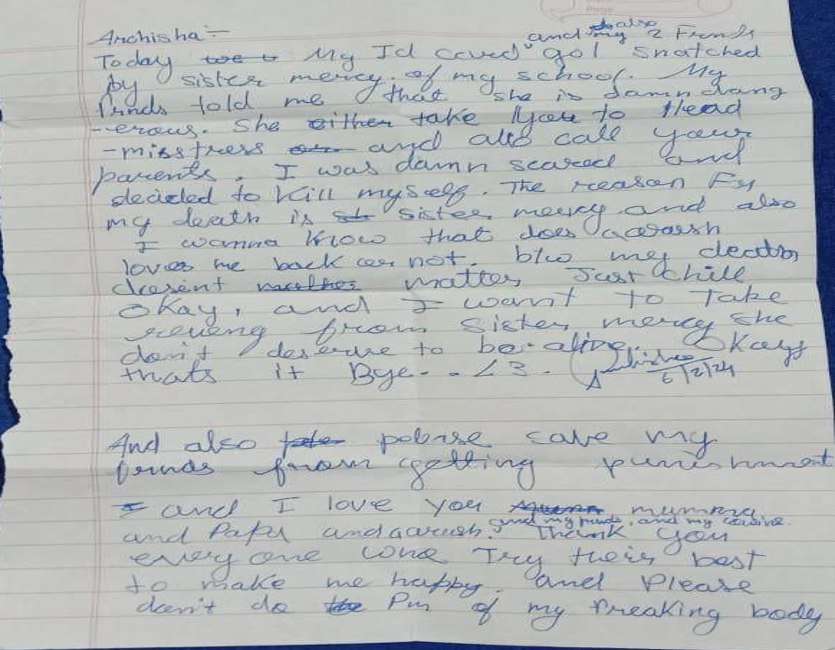 Archisha :-
and my also 2 Frends
Today My Id caved got snatched
by sister mercy. of my school. My
frinds told me that she is damn dang
-erous. she either take you to Head
-misstress and also call your
parents. I was damn scared and
decided to kill myself. The reason For
my death is sister mercy and also
I wanna know that does aarash
loves me back or not. btw my death
doesent matter Just chill
Okay, and I want to Take
reveng from sister mercy she
don't deserve to be alive. Okay
thats it Bye.. <3.
6/2/24
And also please save my
frinds from getting punishment
and I love you mummy
and Papa and aarush. and my frinds, and my cousine.
Thank you
everyone who Try their best
to make me happy. and Please
don't do the Pm of my freaking body